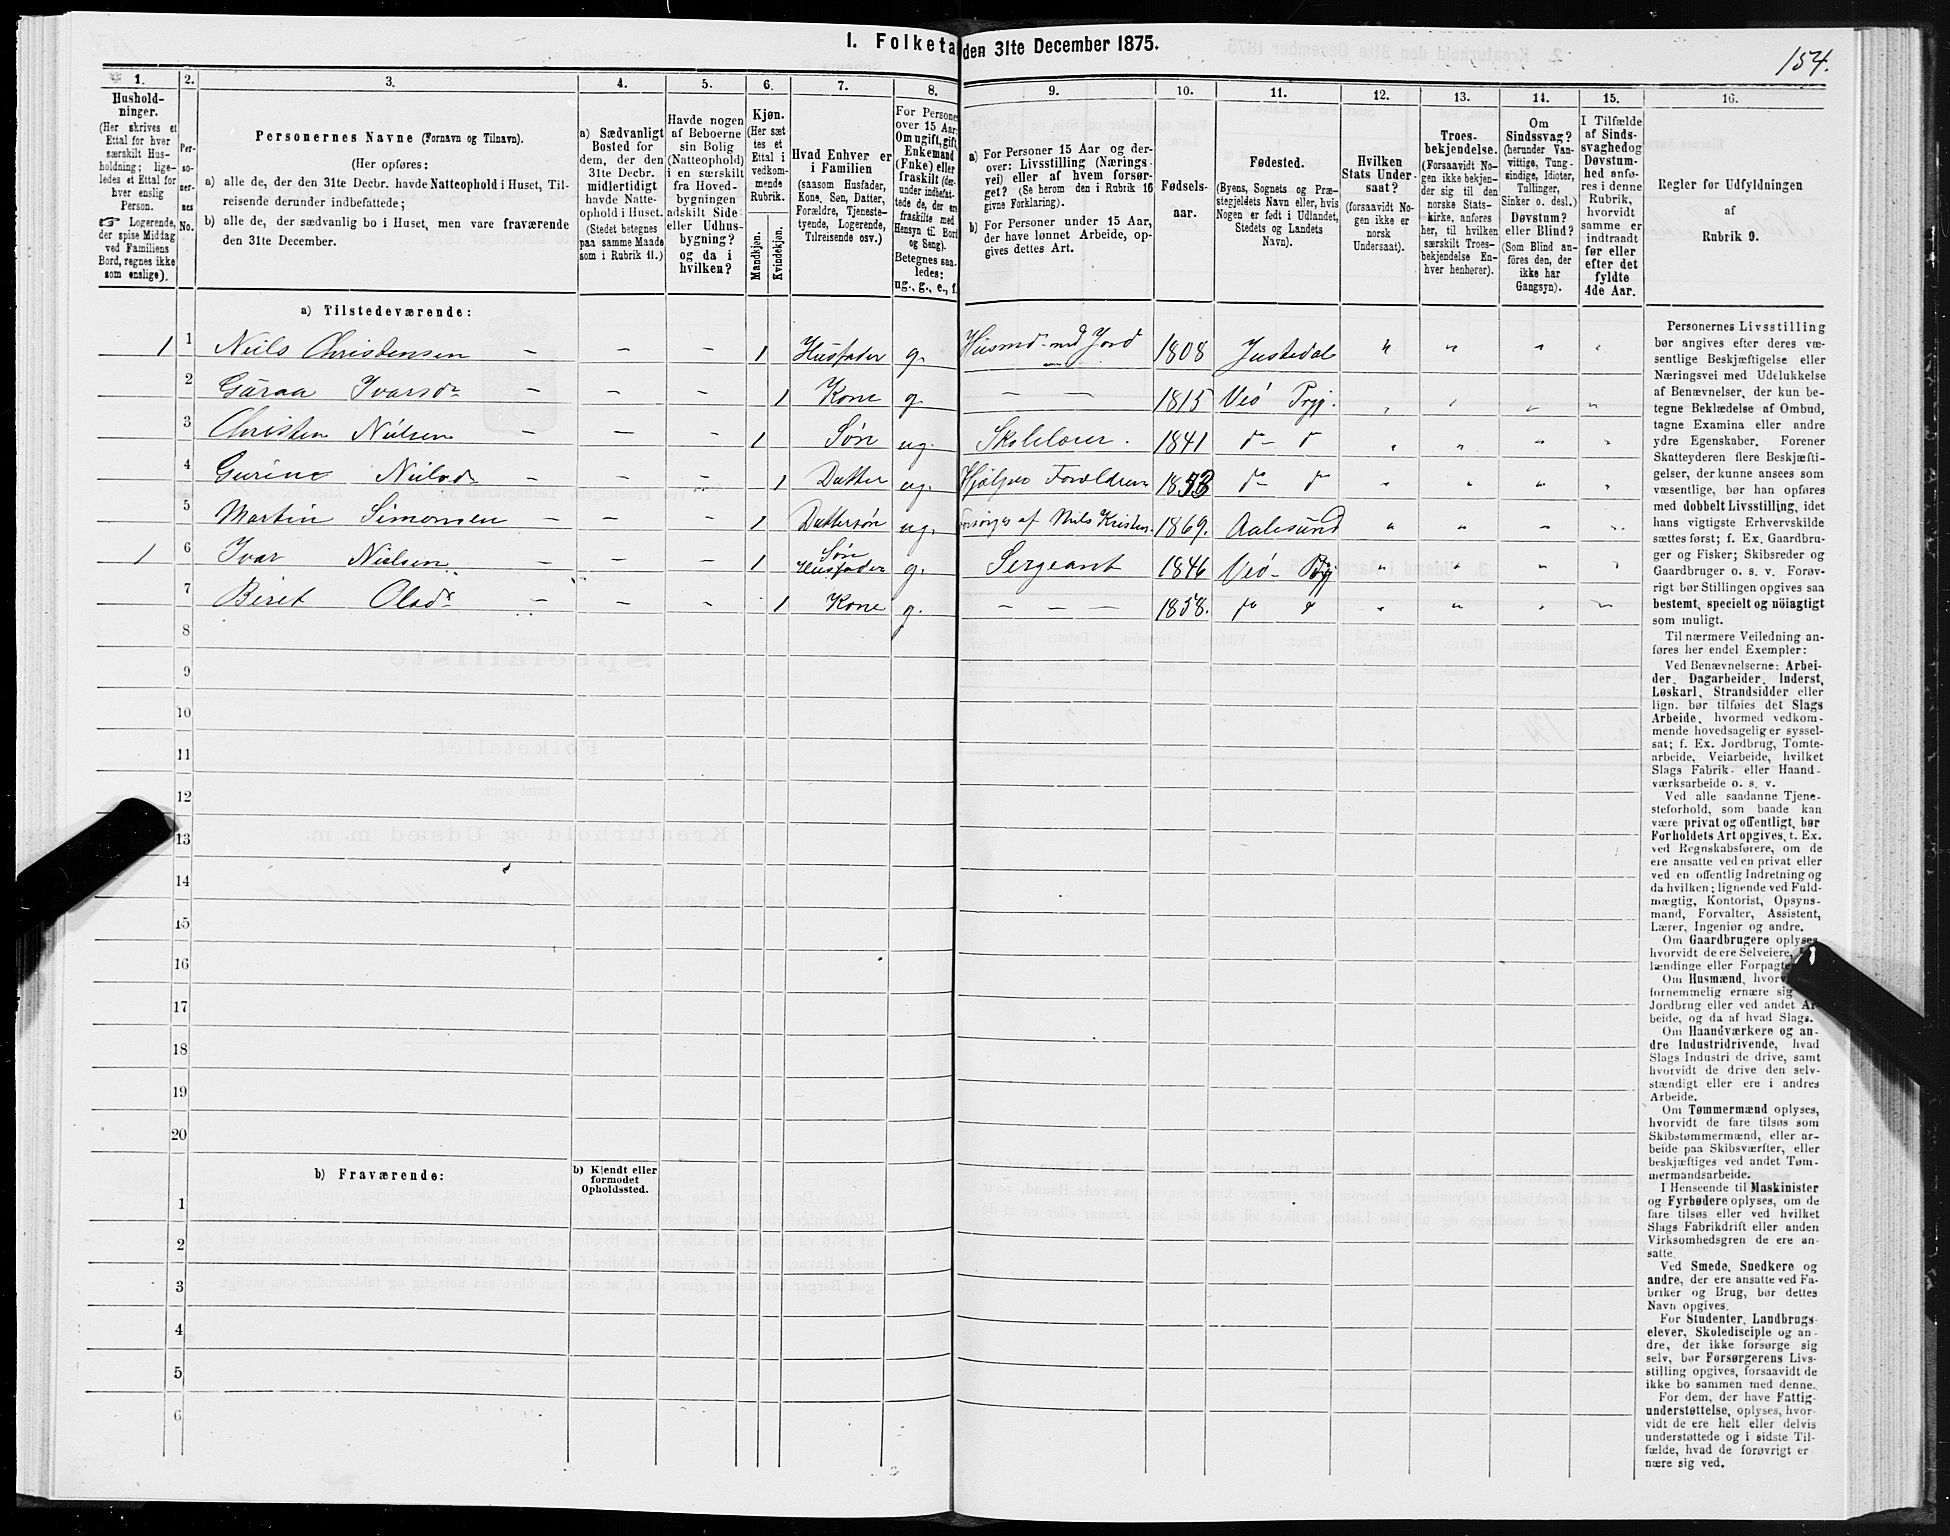 154.
I. Folketa den 31te December 1875.
1. 2. 3. 4. 5. 6. 7. 8. 9. 10. 11. 12. 13. 14. 15. 16.
Hushold-
ninger.
(Her skrives et
Ettal for hver
særskilt Hus-
holdning; lige-
ledes et Ettal for
hver enslig
Person.
☞ Logerende,
der spise Middag
ved Familiens
Bord, regnes ikke
som enslige).
Per-
so-
ner-
nes
No.
Personernes Navne (Fornavn og Tilnavn).
(Her opføres:
a) alle de, der den 31te Decbr. havde Natteophold i Huset, Til-
reisende derunder indbefattede;
b) alle de, der sædvanlig bo i Huset, men vare fraværende
den 31te December.
a) Sædvanligt
Bosted for
dem, der den
31te Decbr.
midlertidigt
havde Natte-
ophold i Huset.
(Stedet betegnes
paa samme Maade
som i Rubrik 11.)
Havde nogen
af Beboerne
sin Bolig
(Natteophold)
i en særskilt
fra Hoved-
bygningen
adskilt Side-
eller Udhus-
bygning?
og da i
hvilken?
Kjøn.
(Her sæt-
tes et
Ettal i
vedkom-
mende
Rubrik.
Mandkjøn.
Kvindekjøn.
Hvad Enhver er
i Familien
(saasom Husfader,
Kone, Søn, Datter,
Forældre, Tjeneste-
tyende, Logerende,
Tilreisende osv.)
For Persone
over 15 Aar:
Om ugift, gift,
Enkemand
(Enke) eller
fraskilt (der-
under indbefat-
tede de, der ere
fraskilte med
Hensyn til Bord
og Seng).
Betegnes saa-
ledes:
ug., g., e., f.
a) For Personer 15 Aar og der-
over: Livsstilling (Nærings-
vei) eller af hvem forsør-
get? (Se herom den i Rubrik 16
givne Forklaring).
b) For Personer under 15 Aar,
der have lønnet Arbeide, op-
gives dettes Art.
Fødsels-
aar.
Fødested.
(Byens, Sognets og Præ-
stegjeldets Navn eller, hvis
Nogen er født i Udlandet,
Stedets og Landets
Navn).
Hvilken
Stats Under-
saat?
(forsaavidt No-
gen ikke er
norsk
Undersaat).
Troes-
bekjendelse.
(Forsaavidt No-
gen ikke bekjen-
der sig til den
norske Stats-
kirke, anføres
her, til hvilken
særskilt Troes-
bekjendelse En-
hver henhører).
Om
Sindssvag?
(herunder Van-
vittige, Tung-
sindige, Idioter,
Tullinger,
Sinker o. desl.)
Døvstum?
eller Blind?
(Som Blind an-
føres den, der
ikke har
Gangsyn).
I Tilfælde
af Sinds-
svaghed og
Døvstum-
hed anfø-
res i denne
Rubrik,
hvorvidt
samme er
indtraadt
før eller
efter det
fyldte
4de Aar.
Regler for Udfyldningen
af
Rubrik 9.
a) Tilstedeværende:
1 1 Niels Christensen - - - 1 Husfader g. Husmd. md Jord 1808 Justedal " " " "
2 Guraa Ivarsdr - - - 1 Kone g. - - 1815 Veø Prgj. " " " "
3 Christen Nielsen - - - 1 Søn ug. Skolelærer. 1841 do do " " " "
4 Gurine Nielsdr - - - 1 Datter ug. Hjælper Forældrene 1853 do do " " " "
5 Martin Simonsen - - - 1 Dattersøn ug. Forsørges af Niels Kristens. 1869. Aalesund " " " "
1 6 Ivar Nielsen - - 1 Søn Husfader g. Sergeant 1846 Veø Prgj " " " "
7 Beret Olsdr - - - 1 Kone g. - - - 1858. do do " " " "
8
9
10
11
12
13
14
15
16
17
18
19
20
b) Fraværende:
b) Kjendt eller
formodet
Opholdssted.
1
2
3
4
5
6
Personernes Livsstilling
bør angives efter deres væ-
sentlige Beskjæftigelse eller
Næringsvei med Udelukkelse
af Benævnelser, der kun be-
tegne Beklædelse af Ombud,
tagne Examina eller andre
ydre Egenskaber. Forener
Skatteyderen flere Beskjæfti-
gelser, der kunne ansees som
væsentlige, bør han opføres
med dobbelt Livsstilling, idet
hans vigtigste Erhvervskilde
sættes først; f. Ex. Gaardbru-
ger og Fisker; Skibsreder og
Gaardbruger o. s. v. Forøv-
rigt bør Stillingen opgives saa
bestemt, specielt og nöiagtigt
som muligt.
Til nærmere Veiledning an-
føres her endel Exempler:
Ved Benævnelserne: Arbei-
der, Dagarbeider, Inderst,
Løskarl, Strandsidder eller
lign. bør tilføies det Slags
Arbeide, hvormed vedkom-
mende hovedsagelig er syssel-
sat; f. Ex. Jordbrug, Tomte-
arbeide, Veiarbeide, hvilket
Slags Fabrik- eller Haand-
værksarbeide o. s. v.
Ved alle saadanne Tjene-
steforhold, som baade kan
være privat og offentligt, bør
Forholdets Art opgives, t. Ex.
ved Regnskabsførere, om de
ere ansatte ved en privat eller
ved en offentlig Indretning og
da hvilken; lignende ved Fuld-
mægtig, Kontorist, Opsyns-
mand, Forvalter, Assistent,
Lærer, Ingeniør og andre.
Om Gaardbrugere oplyses,
hvorvidt de ere Selveiere,
lændinge eller Forpagte
Om Husmænd, hvorv
fornemmelig ernære sig
Jordbrug eller ved andet Ar-
beide, og da af hvad Slags.
Om Haandværkere og an-
dre Industridrivende, hvad
Slags Industri de drive, samt
hvorvidt de drive den selv-
stændigt eller ere i andres
Arbeide.
Om Tømmermænd oplyses,
hvorvidt de fare tilsøs som
Skibstømmermænd, eller ar-
beide paa Skibsværfter, eller
beskjæftiges ved andet Tøm-
mermandsarbeide.
I Henseende til Maskinister
og Fyrbødere oplyses, om de
fare tilsøs eller ved hvilket
Slags Fabrikdrift eller anden
Virksomhedsgren de ere an-
satte.
Ved Smede, Snedkere og
andre, der ere ansatte ved Fa-
briker og Brug, bør dettes
Navn opgives.
For Studenter, Landbrugs-
elever, Skoledisciple og an-
dre, der ikke forsørge sig
selv, bør Forsørgerens Livs-
stilling opgives, forsaavidt de
ikke bo sammen med denne.
For dem, der have Fattig-
understøttelse, oplyses, hvor-
vidt de ere helt eller delvis
understøttede og i sidste Til-
fælde, hvad de forøvrigt er
nære sig ved.